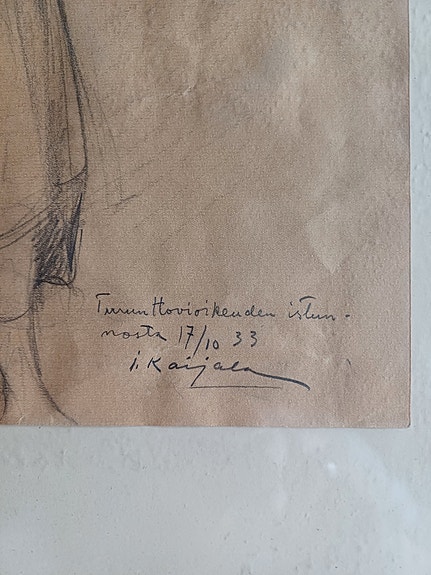 Turun Hovioikeuden istun-
nosta 17/10 33
i. Kaijala